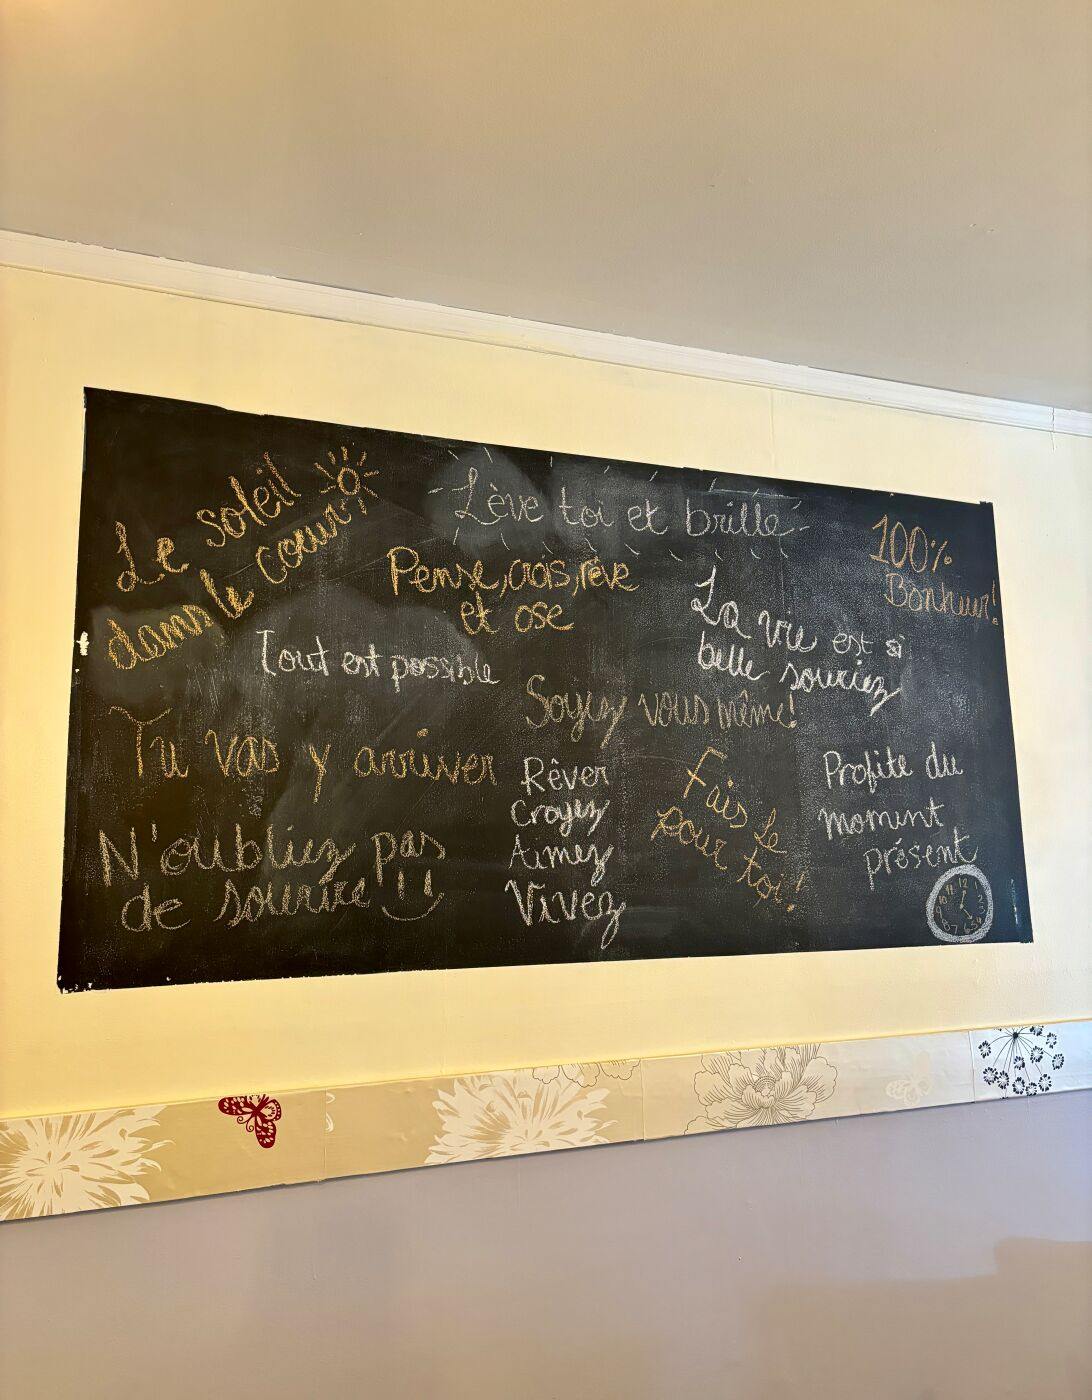 Le soleil
dans le coeur
Lève toi et brille
100%
Bonheur!
Pense, crois, rêve
et ose
La vie est si
belle souriez
Tout est possible
Soyez vous même!
Tu vas y arriver
Rêver
Croyez
Aimez
Vivez
Fais le
pour toi!
Profite du
moment
présent
N'oubliez pas
de sourire